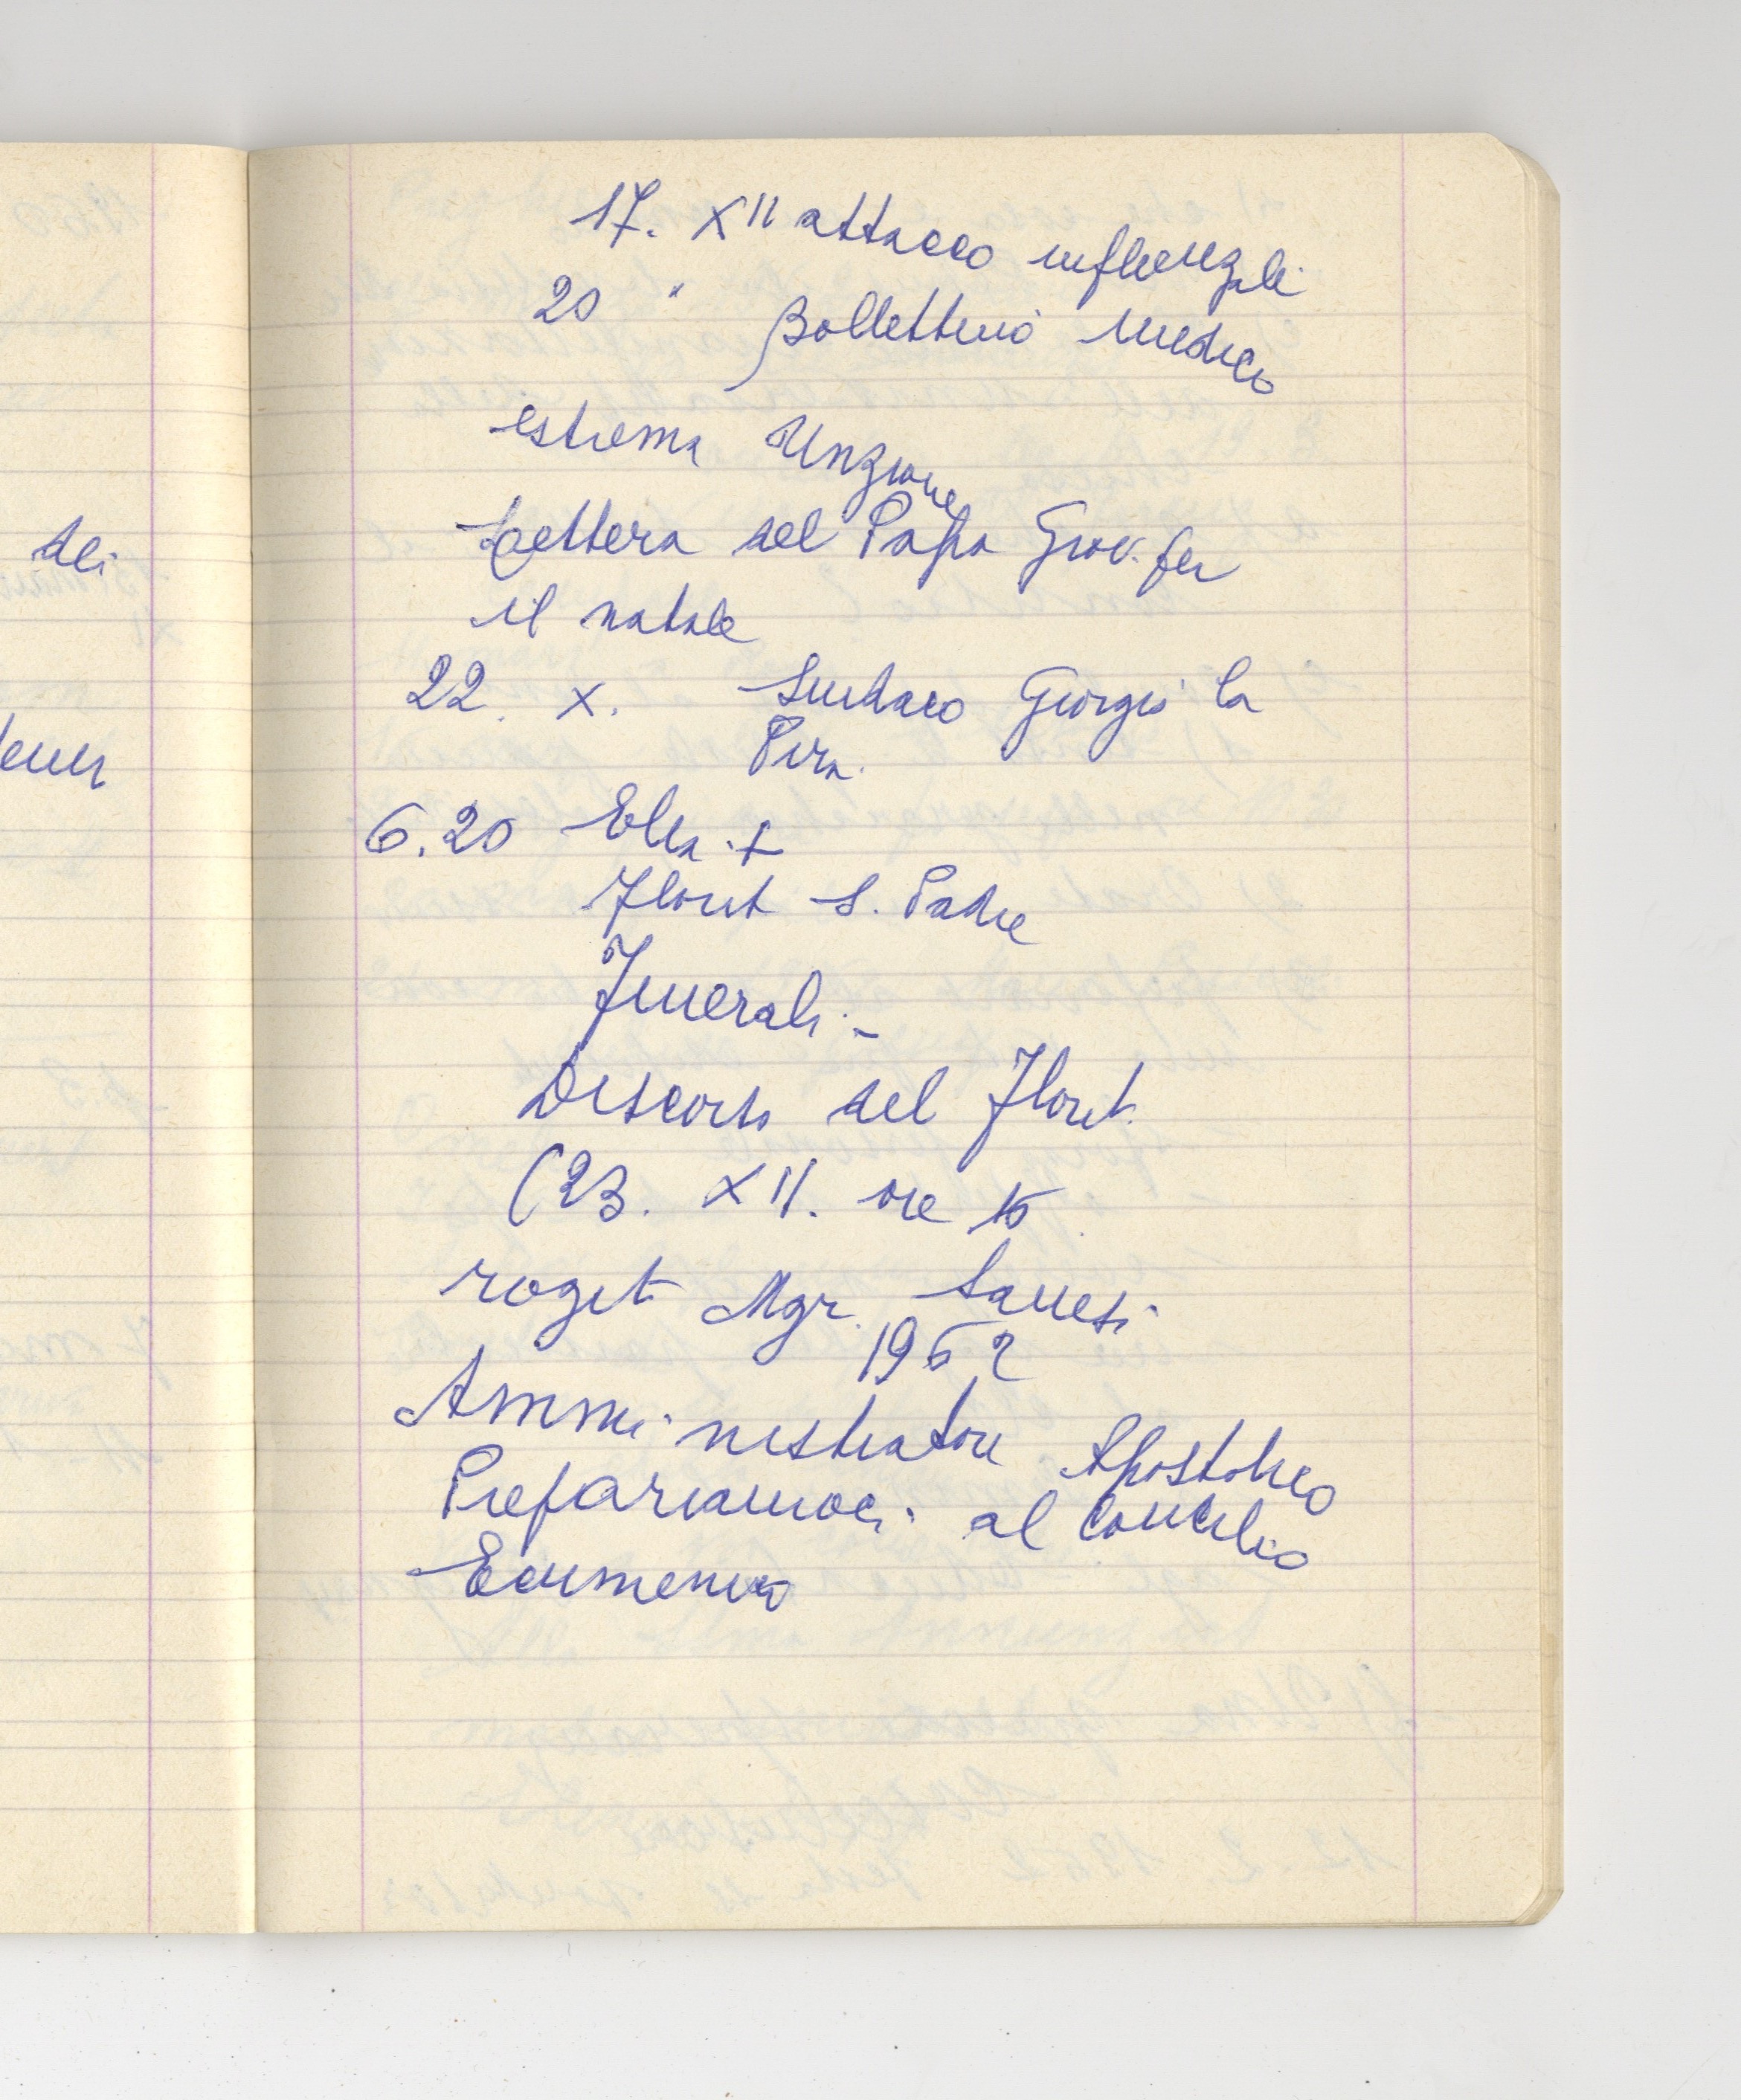 17. XII attacco influenzale
20 " Bollettino Medico
estrema Unzione
Lettera del Papa Giov. per
il natale
22. X. Sindaco Giorgio la
Pira.
6.20 Elia +
Florit S. Padre
Funerali -
Discorso del Florit.
(23. XII. ore 15
rogit Mgr. Sanesi
1962
Amministratore Apostolico
Prepariamoci al Concilio
Ecumenico
dei